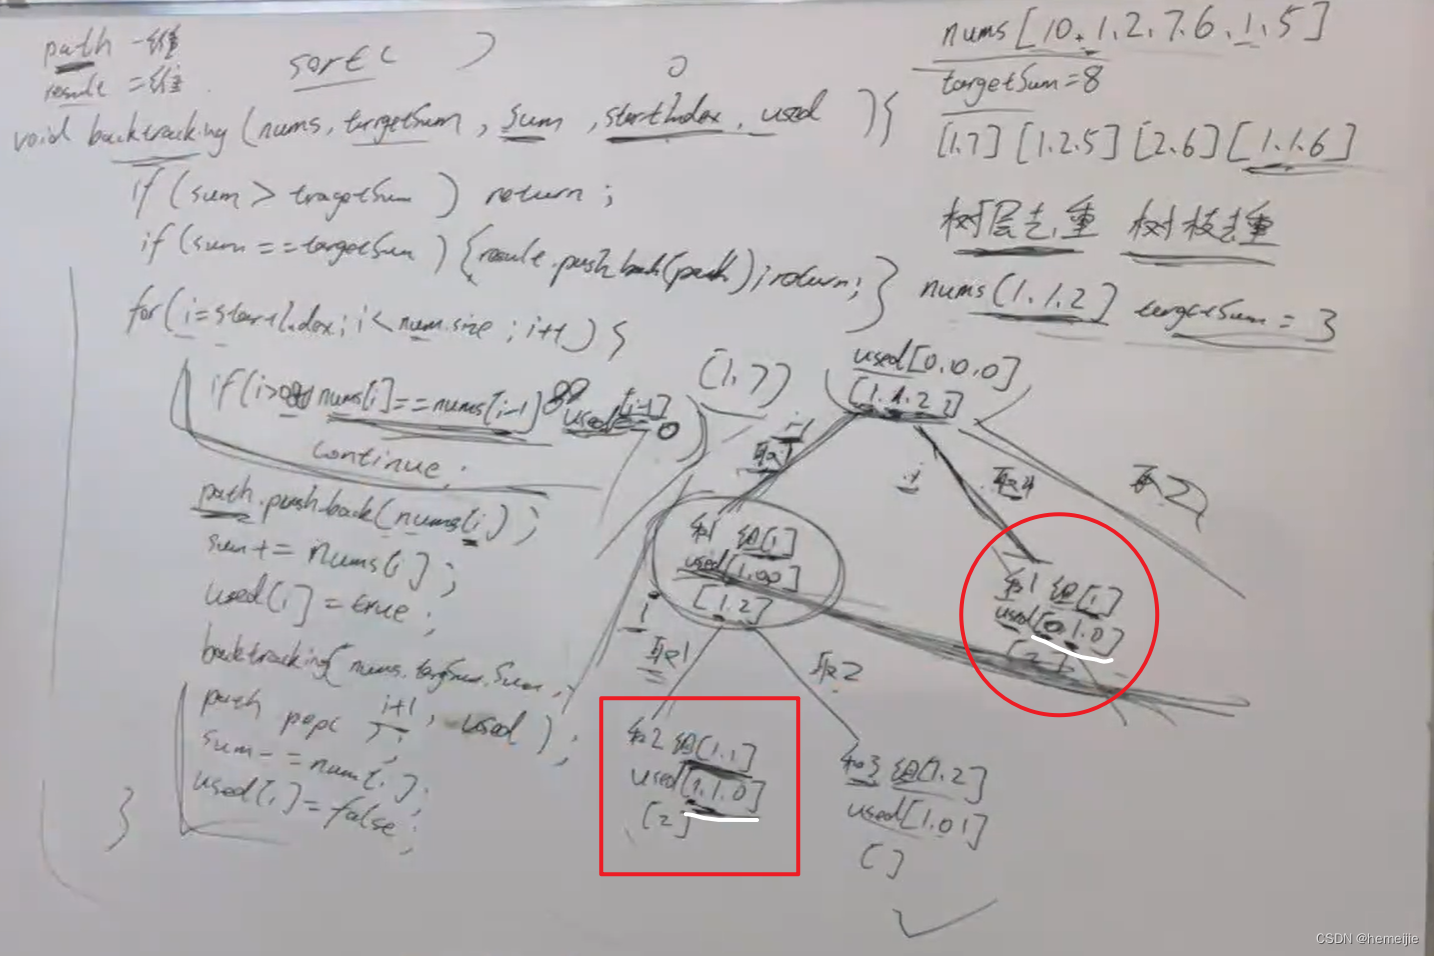 path 一维
result 二维
sort( )
0
void backtracking (nums, targetSum, sum, startIndex, used ){
if (sum > tragetSum ) return ;
if (sum == targetSum ) {result.pushback(path);return;}
for(i=startIndex; i< num.size ; i++) {
if (i>0 && nums[i]==nums[i-1] && used[i-1]==0)
continue;
path.pushback(nums[i]);
sum+= nums[i];
used[i]=true;
backtracking(nums.targSum.Sum,
i+1, used );
path pop
sum-=num[i];
used[i]=false;
}
nums[10,1,2,7,6,1,5]
targetSum=8
[1.7] [1.2.5] [2.6] [1.1.6]
树层去重 树枝去重
nums[1.1.2] targetSum = 3
(1,7)
used[0.0.0]
[1.1.2]
取1
取1
取2
和1 组[1]
used[1.00]
[1.2]
和1 组[1]
used[0.1.0]
[2]
取1
取2
和2 组[1.1]
used[1.1.0]
[2]
和3 组[1.2]
used[1.01]
[]
CSDN @hemeijie